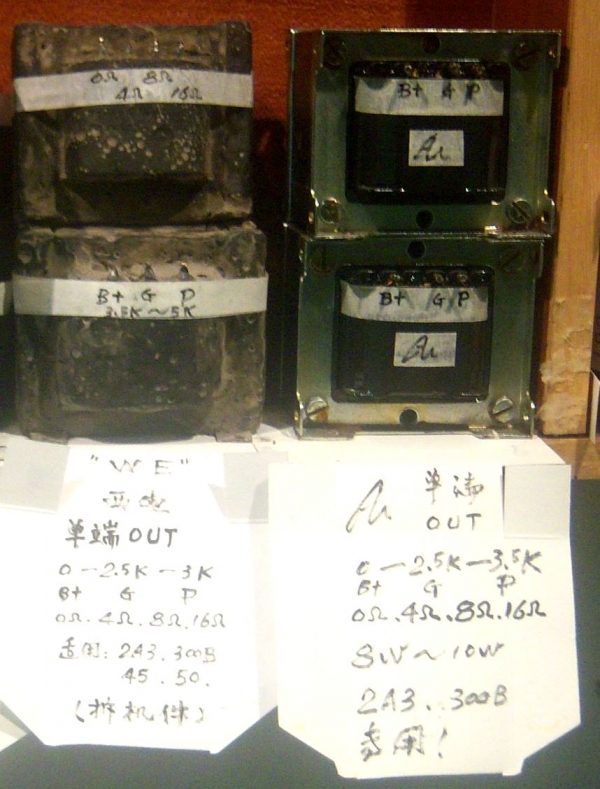 0Ω 8Ω
4Ω 16Ω
B+ G P
3.5K～5K
B+ G P
B+ G P
"WE"
西电
单端OUT
0—2.5K—3K
B+ G P
0Ω.4Ω.8Ω.16Ω
适用:2A3.300B
45.50.
(拆机件)
单端
OUT
0—2.5K—3.5K
B+ G P
0Ω.4Ω.8Ω.16Ω
8W～10W
2A3.300B
专用!